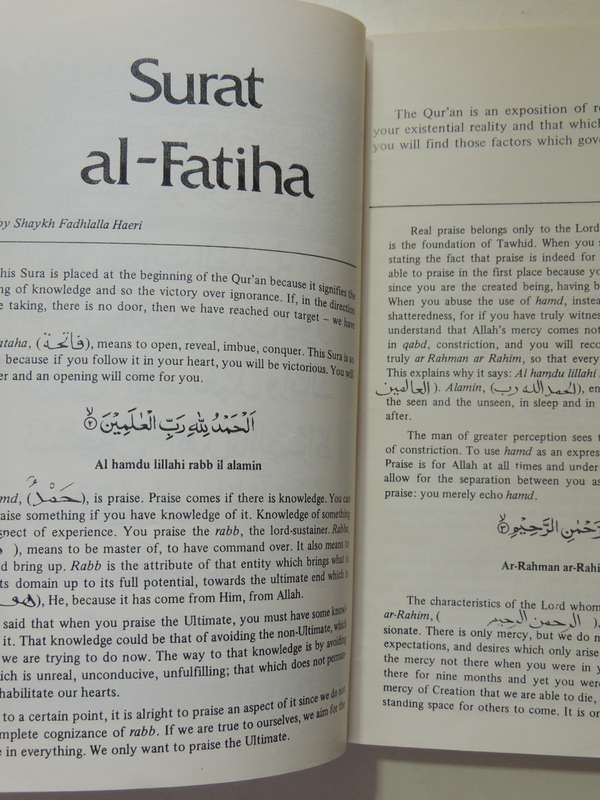 Surat
al-Fatiha
by Shaykh Fadhlalla Haeri
his Sura is placed at the beginning of the Qur'an because it signifies the
ng of knowledge and so the victory over ignorance. If, in the direction
e taking, there is no door, then we have reached our target – we have
ataha, (فَاتِحَة), means to open, reveal, imbue, conquer. This Sura is so
because if you follow it in your heart, you will be victorious. You will
er and an opening will come for you.
اَلْحَمْدُ لِلّٰهِ رَبِّ الْعٰلَمِيْنَ ۙ﴿٢﴾
Al hamdu lillahi rabb il alamin
md, (حَمْدُ), is praise. Praise comes if there is knowledge. You can
aise something if you have knowledge of it. Knowledge of something
spect of experience. You praise the rabb, the lord-sustainer. Rabba,
), means to be master of, to have command over. It also means to
d bring up. Rabb is the attribute of that entity which brings what is
ts domain up to its full potential, towards the ultimate end which is
(هو), He, because it has come from Him, from Allah.
said that when you praise the Ultimate, you must have some know-
it. That knowledge could be that of avoiding the non-Ultimate, which
we are trying to do now. The way to that knowledge is by avoiding
hich is unreal, unconducive, unfulfilling; that which does not permit
habilitate our hearts.
to a certain point, it is alright to praise an aspect of it since we do not
mplete cognizance of rabb. If we are true to ourselves, we aim for the
e in everything. We only want to praise the Ultimate.
The Qur'an is an exposition of re
your existential reality and that which
you will find those factors which gove
Real praise belongs only to the Lord
is the foundation of Tawhid. When you s
stating the fact that praise is indeed for
able to praise in the first place because yo
since you are the created being, having b
When you abuse the use of hamd, instea
shatteredness, for if you have truly witnes
understand that Allah's mercy comes not
in qabd, constriction, and you will reco
truly ar Rahman ar Rahim, so that every
This explains why it says: Al hamdu lillahi
العالمين). Alamin, (الحمد الله رب), en
the seen and the unseen, in sleep and in
after.
The man of greater perception sees t
of constriction. To use hamd as an expres
Praise is for Allah at all times and under
allow for the separation between you as
praise: you merely echo hamd.
رَّحْمٰنِ الرَّحِيْمِ ۙ﴿٣﴾
Ar-Rahman ar-Rahi
The characteristics of the Lord whom
ar-Rahim, (الرحمن الرحيم),
sionate. There is only mercy, but we do n
expectations, and desires which only arise
the mercy not there when you were in y
there for nine months and yet you were
mercy of Creation that we are able to die,
standing space for others to come. It is or